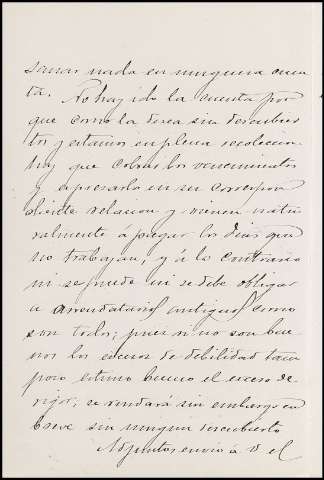 sonar nada en ninguna cuen
ta. No ha ido la cuenta por
que como la desea sin descubier
tos y estamos en plena recoleccion
hay que cobrar los vencimientos
y apremiarlo en su correspon
diente relacion y vienen natu
ralmente á pagar los dias que
no trabajan, y á lo contrario
ni se puede ni se debe obligar
a arrendatarios antiguos como
son todos; pues si no son bue
nos los excesos de debilidad tam
poco estimo bueno el exceso de
rigor; se rendará sin embargo en
breve sin ningun descubierto
Adjuntos envio á V el